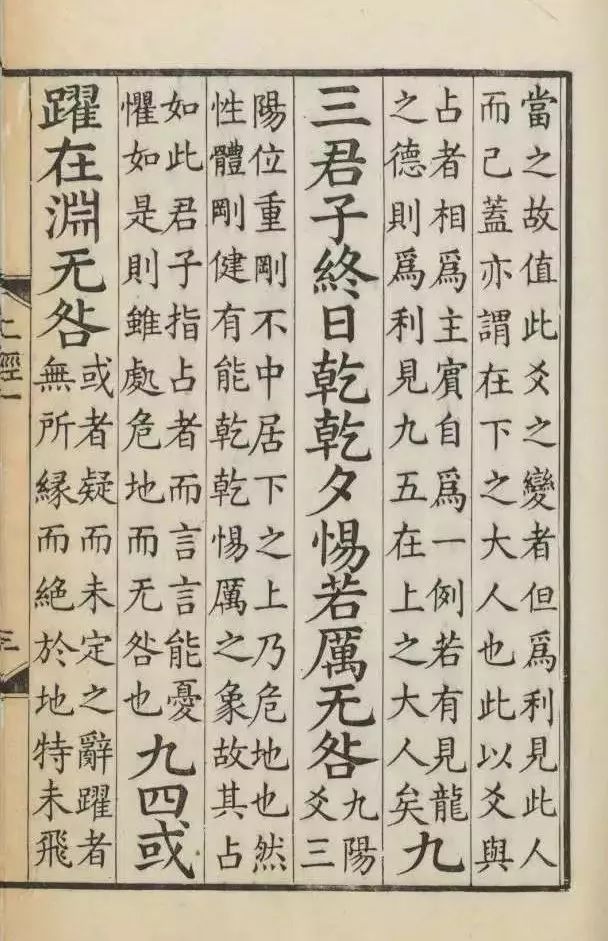 當之故值此爻之變者但爲利見此人
而已蓋亦謂在下之大人也此以爻與
占者相爲主賓自爲一例若有見龍
之德則爲利見九五在上之大人矣
九
三君子終日乾乾夕惕若厲无咎
九陽
爻三
陽位重剛不中居下之上乃危地也然
性體剛健有能乾乾惕厲之象故其占
如此君子指占者而言言能憂
懼如是則雖處危地而无咎也
九四或
躍在淵无咎
或者疑而未定之辭躍者
無所縁而絕於地特未飛
上經一